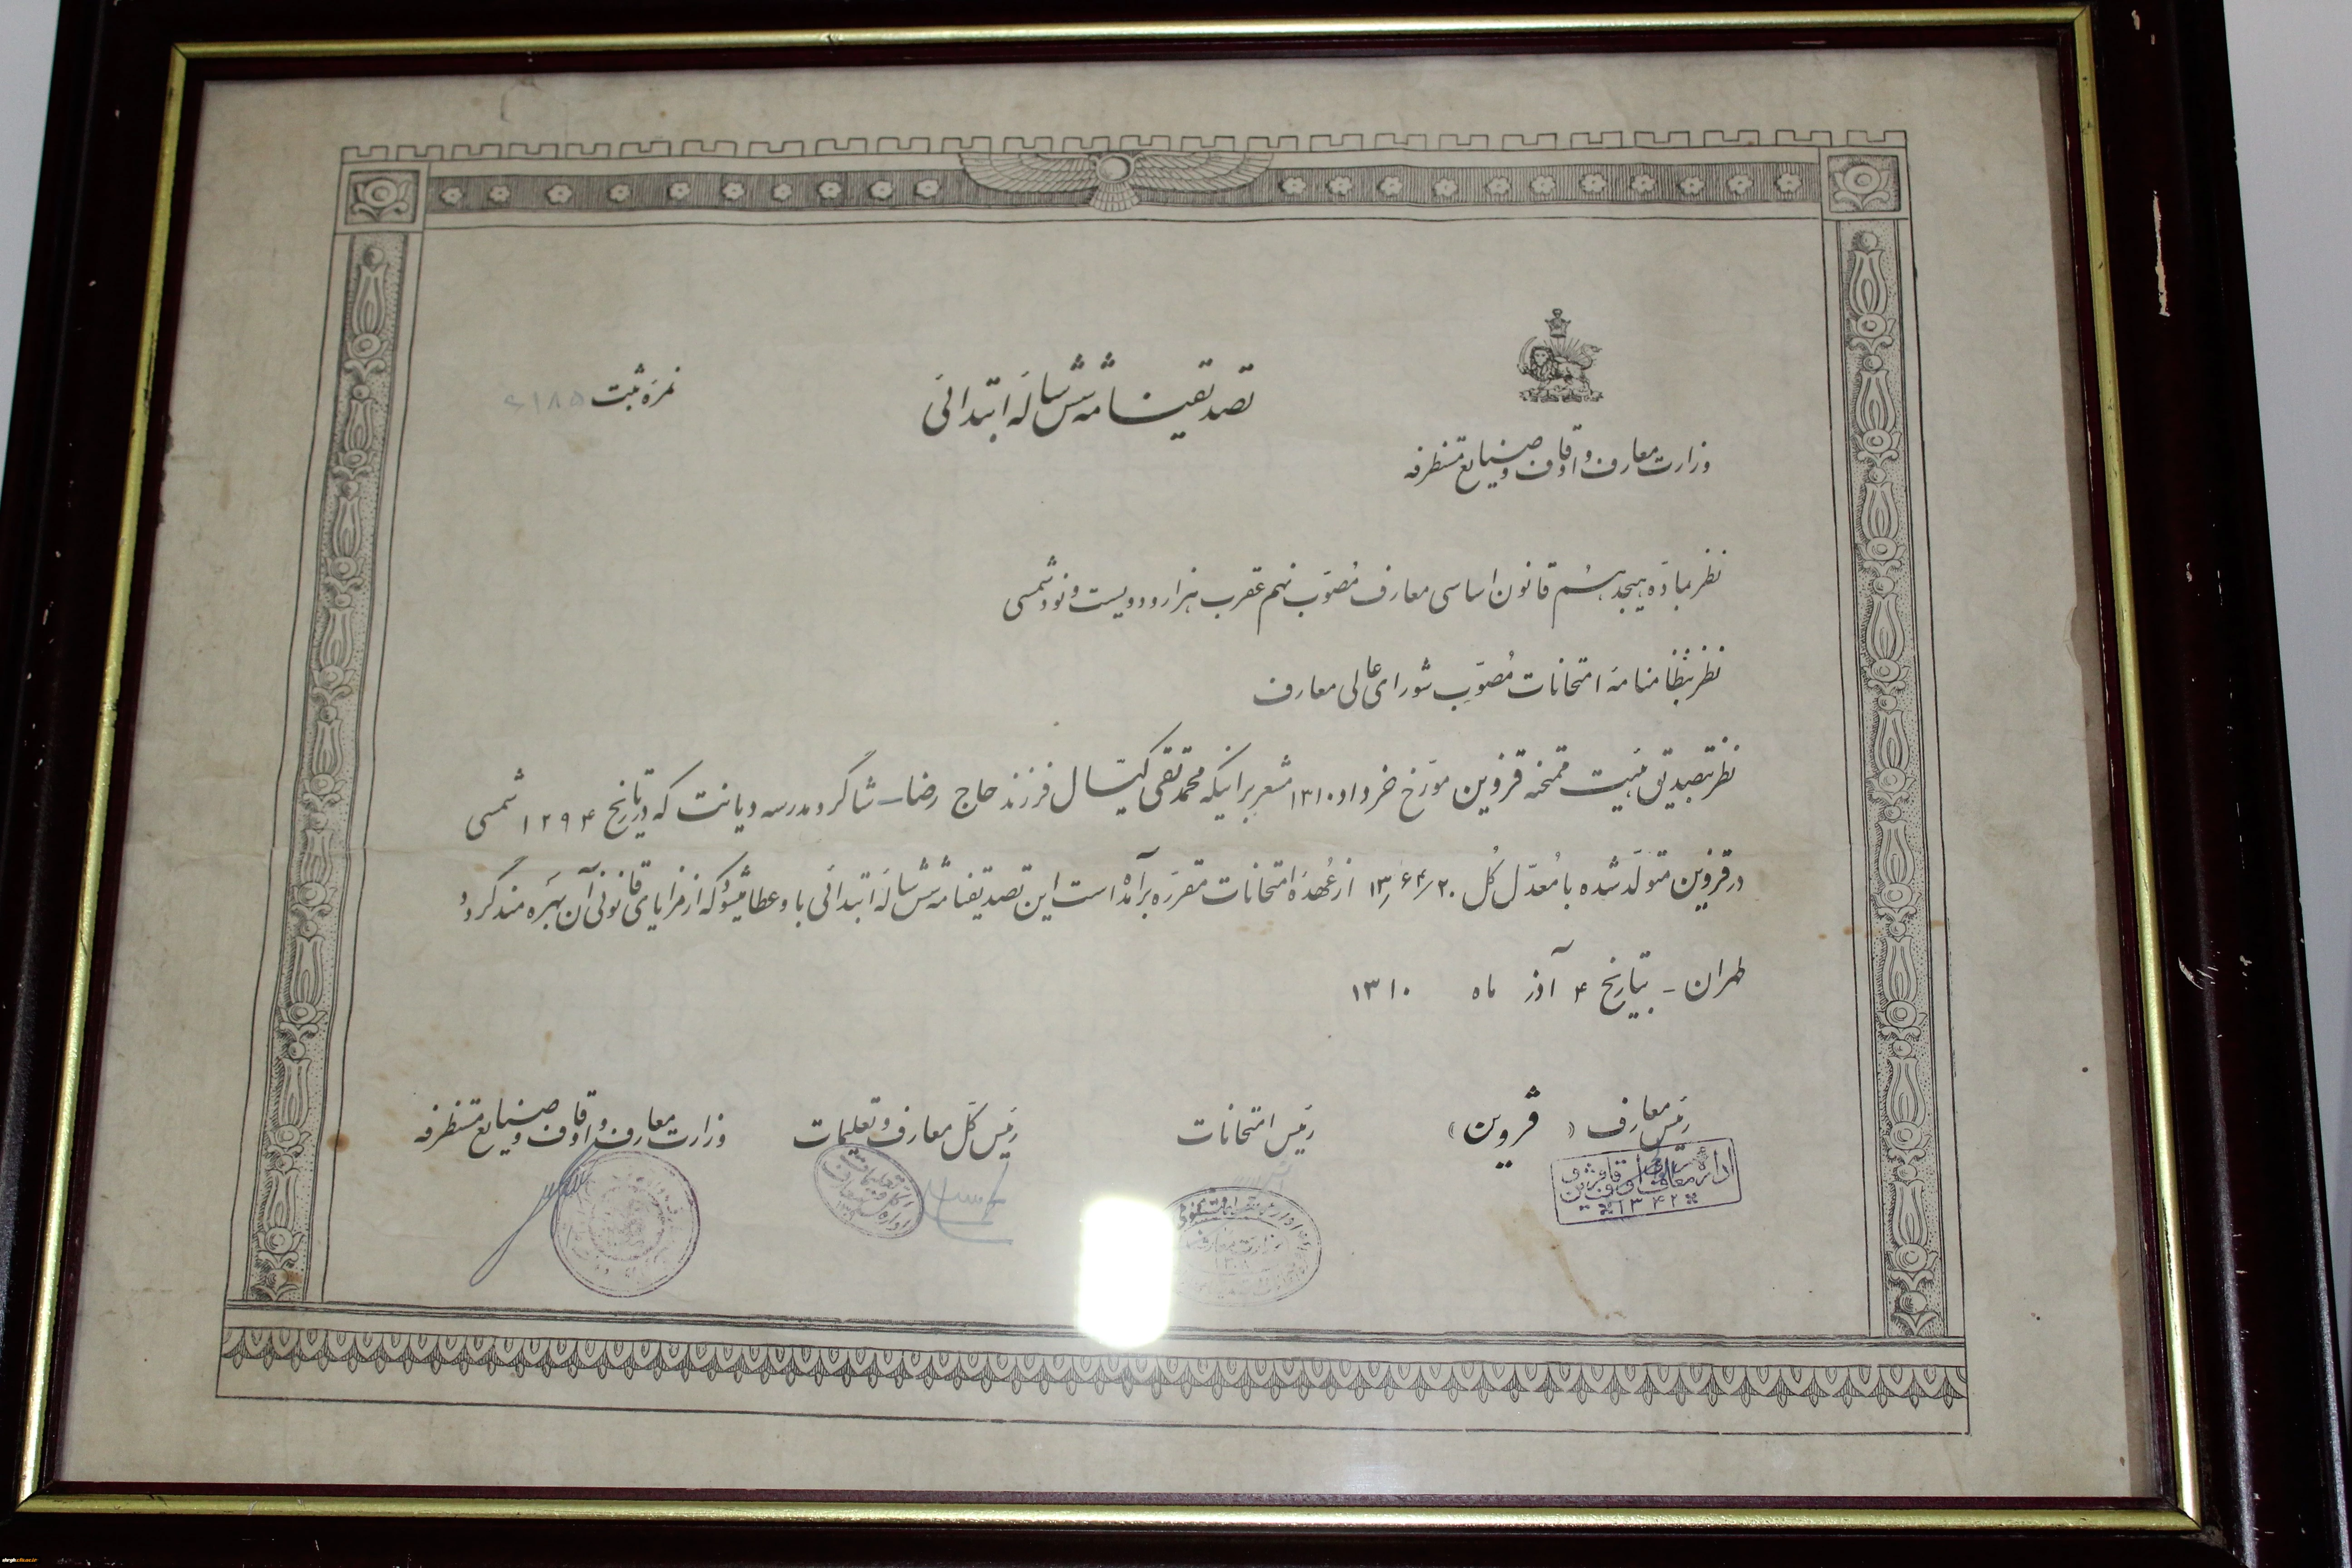 تصدیقنامه شش ساله ابتدائی
نمره ثبت
وزارت معارف و اوقاف و صنایع مستظرفه
نظر بماده هیجدهم قانون اساسی معارف مصوّب نهم عقرب هزار و دویست و نود شمسی
نظر بنظامنامه امتحانات مصوّب شورای عالی معارف
نظر بتصدیق هیئت ممتحنه قزوین مورّخ خرداد ۱۳۱۰ مشعر بر اینکه محمد تقی کیّال فرزند حاج رضا - شاگرد مدرسه دیانت که در تاریخ ۱۲۹۴ شمسی
در قزوین متولّد شده با مُعدّل کُل ۱۳٫۶۴/۲۰ از عُهده امتحانات مقرّره برآمده است این تصدیقنامه شش ساله ابتدائی باو عطا میشود که از مزایای قانونی آن بهره مند گردد
طهران - بتاریخ ۴ آذر ماه ۱۳۱۰
رئیس معارف ( قزوین )
رئیس امتحانات
رئیس کلّ معارف و تعلیمات
وزارت معارف و اوقاف و صنایع مستظرفه
اداره معارف و اوقاف قزوین
۱۳۴۲